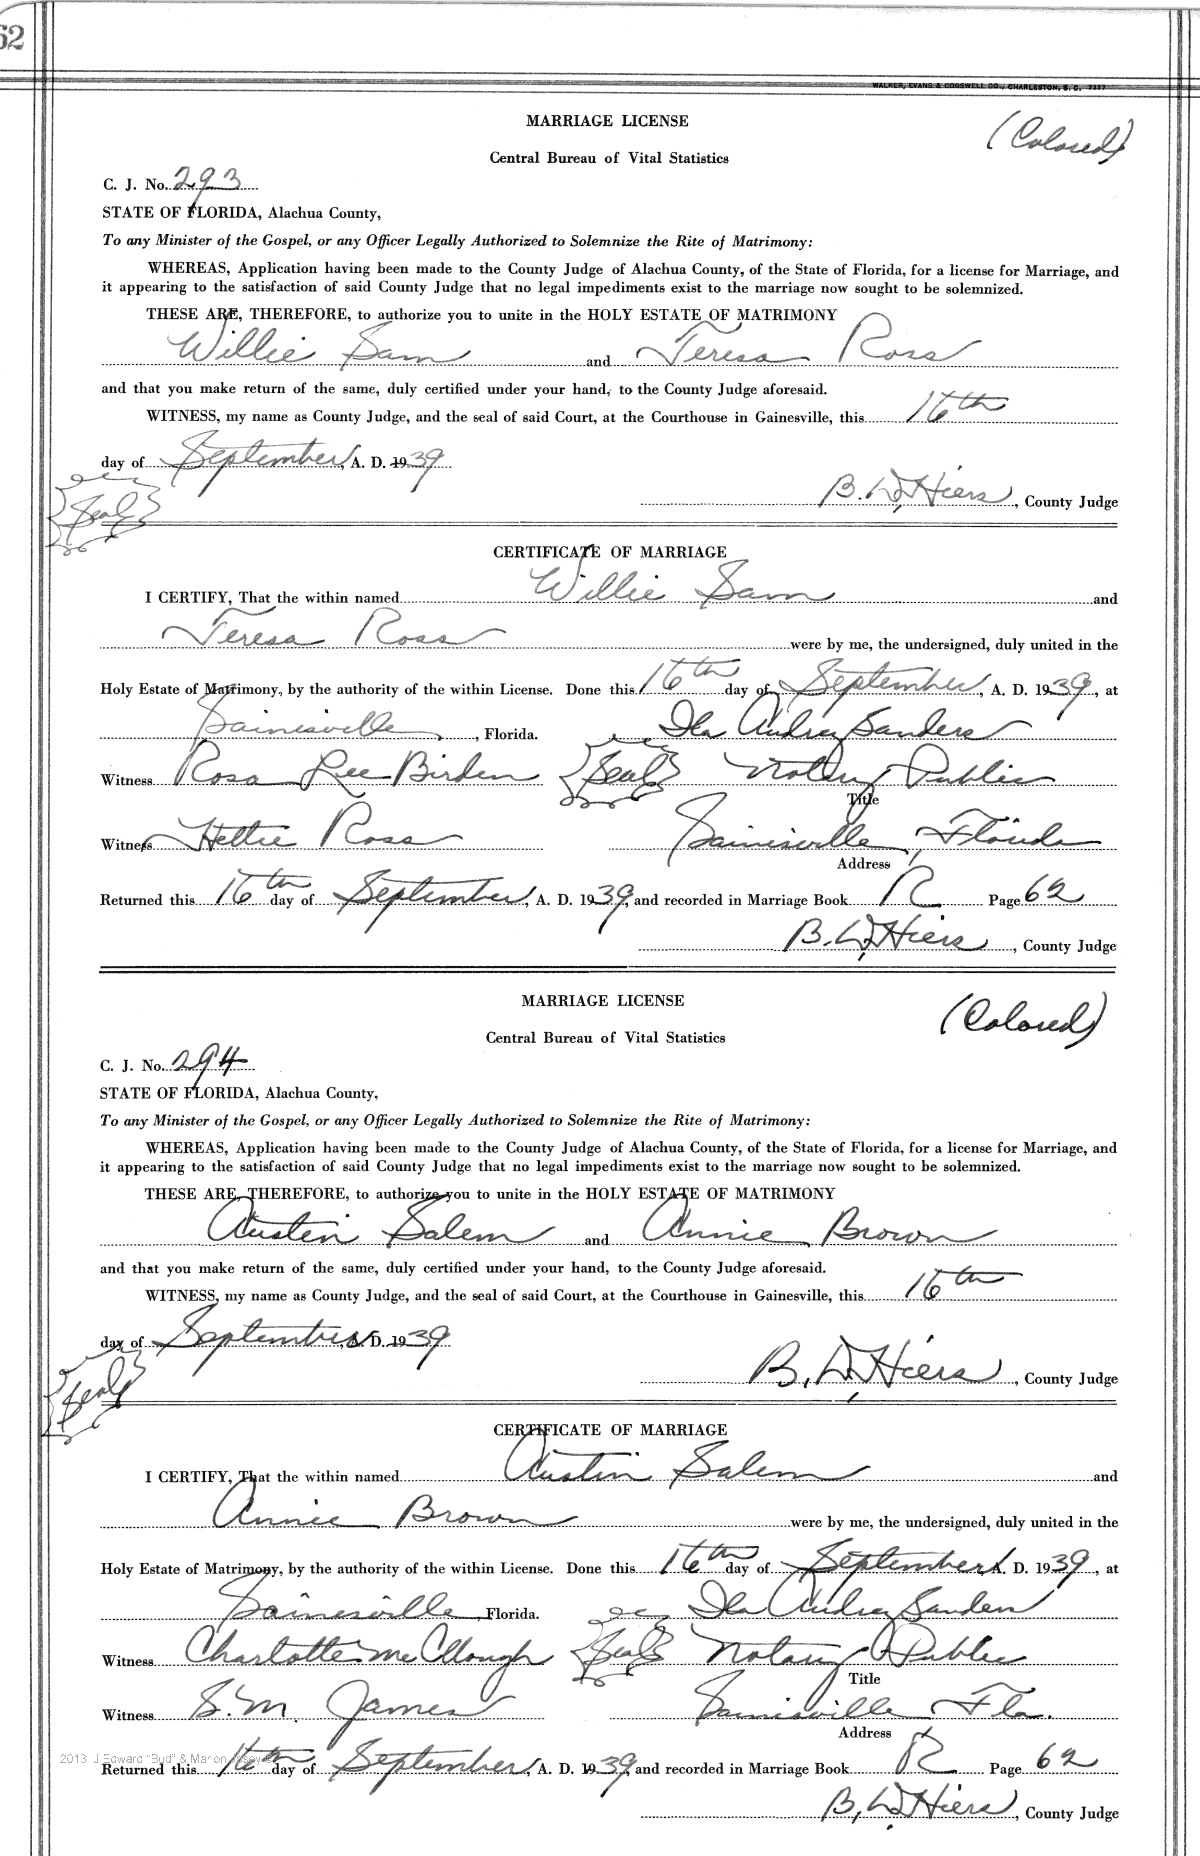 62
WALKER, EVANS & COGSWELL CO., CHARLESTON, S. C. 7337
MARRIAGE LICENSE
(Colored)
Central Bureau of Vital Statistics
C. J. No. 293
STATE OF FLORIDA, Alachua County,
To any Minister of the Gospel, or any Officer Legally Authorized to Solemnize the Rite of Matrimony:
WHEREAS, Application having been made to the County Judge of Alachua County, of the State of Florida, for a license for Marriage, and
it appearing to the satisfaction of said County Judge that no legal impediments exist to the marriage now sought to be solemnized.
THESE ARE, THEREFORE, to authorize you to unite in the HOLY ESTATE OF MATRIMONY
Willie Sam and Teresa Ross
and that you make return of the same, duly certified under your hand, to the County Judge aforesaid.
WITNESS, my name as County Judge, and the seal of said Court, at the Courthouse in Gainesville, this 16th
day of September, A. D. 1939
Seal
B. D. Hiers, County Judge
CERTIFICATE OF MARRIAGE
I CERTIFY, That the within named Willie Sam and
Teresa Ross were by me, the undersigned, duly united in the
Holy Estate of Matrimony, by the authority of the within License. Done this 16th day of September, A. D. 1939, at
Gainesville, Florida. Ila Audrey Sanders
Witness Rosa Lee Birden Seal Notary Public
Title
Witness Hettie Ross Gainesville, Florida
Address
Returned this 16th day of September, A. D. 1939, and recorded in Marriage Book R Page 62
B. D. Hiers, County Judge
MARRIAGE LICENSE
(Colored)
Central Bureau of Vital Statistics
C. J. No. 294
STATE OF FLORIDA, Alachua County,
To any Minister of the Gospel, or any Officer Legally Authorized to Solemnize the Rite of Matrimony:
WHEREAS, Application having been made to the County Judge of Alachua County, of the State of Florida, for a license for Marriage, and
it appearing to the satisfaction of said County Judge that no legal impediments exist to the marriage now sought to be solemnized.
THESE ARE, THEREFORE, to authorize you to unite in the HOLY ESTATE OF MATRIMONY
Austin Salem and Annie Brown
and that you make return of the same, duly certified under your hand, to the County Judge aforesaid.
WITNESS, my name as County Judge, and the seal of said Court, at the Courthouse in Gainesville, this 16th
day of September, A. D. 1939
Seal
B. D. Hiers, County Judge
CERTIFICATE OF MARRIAGE
I CERTIFY, That the within named Austin Salem and
Annie Brown were by me, the undersigned, duly united in the
Holy Estate of Matrimony, by the authority of the within License. Done this 16th day of September, A. D. 1939, at
Gainesville, Florida. Ila Audrey Sanders
Witness Charlotte McCllough Seal Notary Public
Title
Witness S. M. James Gainesville Fla.
Address
2013 J Edward "Bud" & Marion
Returned this 16th day of September, A. D. 1939, and recorded in Marriage Book R Page 62
B. D. Hiers, County Judge